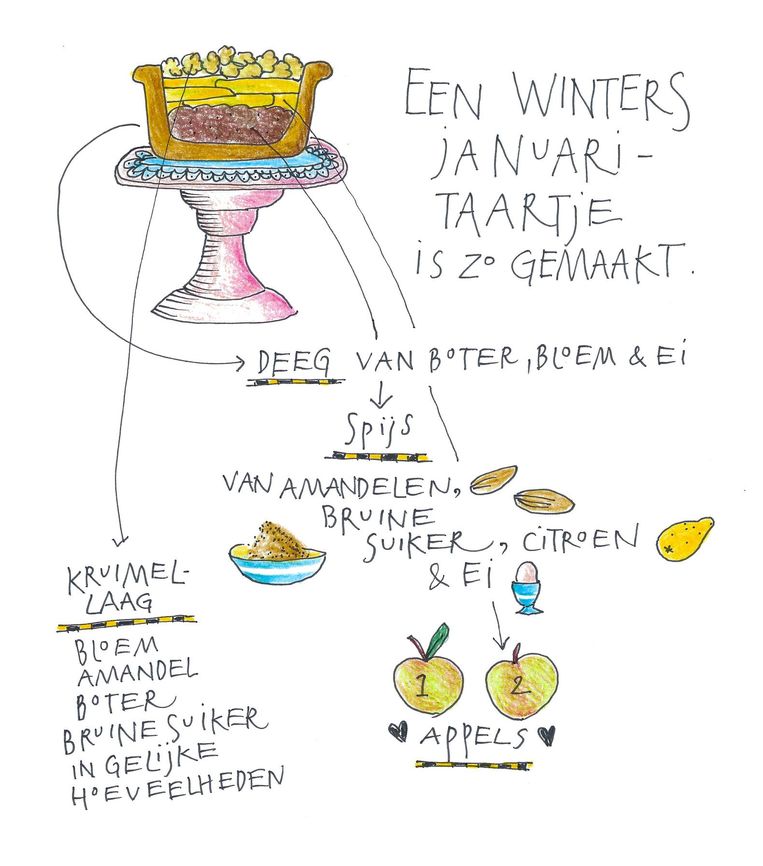 EEN WINTERS
JANUARI-
TAARTJE
IS ZO GEMAAKT.
DEEG VAN BOTER, BLOEM & EI
SPIJS
VAN AMANDELEN,
BRUINE
SUIKER, CITROEN
& EI
KRUIMEL-
LAAG
BLOEM
AMANDEL
BOTER
BRUINE SUIKER
IN GELIJKE
HOEVEELHEDEN
1 2
APPELS